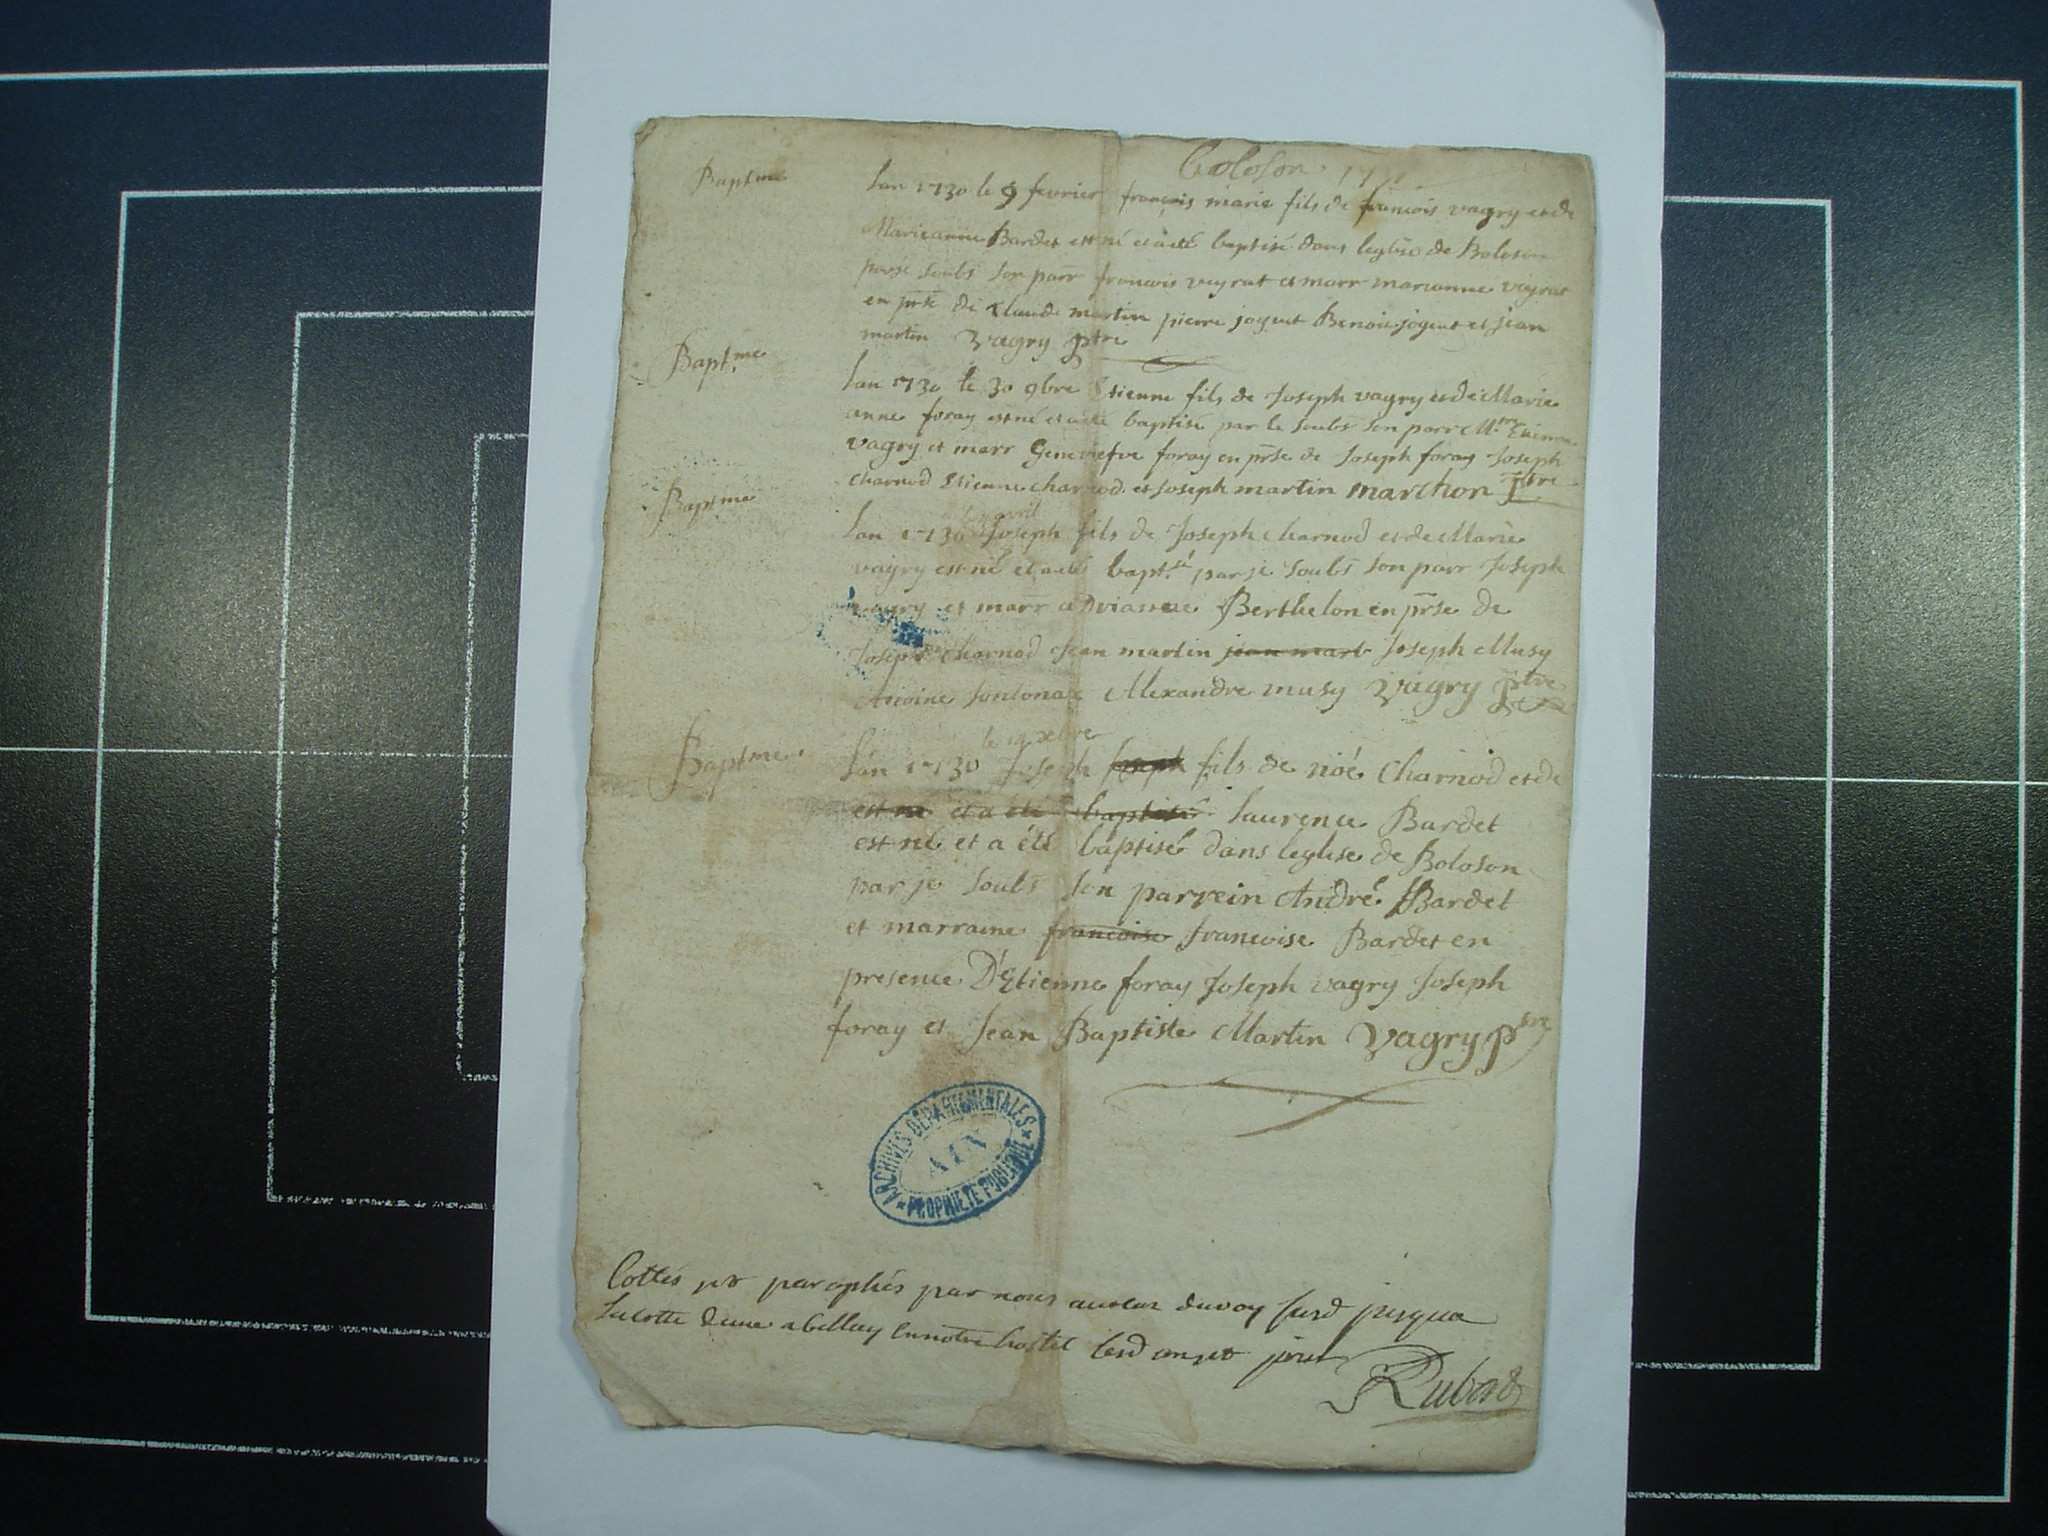 Boloson
Baptme Lan 1730 le 9 fevrier francois marie fils de francois vagry et de
Marieanne Bardet est né et a eté baptisé dans leglise de Boloson
par je soubs son parr francois veyrat et marr marianne veyrat
en prse de Claude martin pierre joguet Benoit joguet et jean
martin Vagry ptre
Bapt.me Lan 1730 le 30 9bre Etienne fils de Joseph vagry et de Marie
anne foray est né et a eté baptisé par le soubs son parr Mre Etienne
vagry et marr Geneviefve foray en prse de Joseph foray Joseph
charnod Etienne charnod et Joseph martin marchon Ptre
avril
Baptme Lan 1730 Joseph fils de Joseph charnod et de Marie
vagry est né et a eté bapt.sé par je soubs son parr Joseph
vagry et marr Berthelon en prse de
Joseph charnod Jean martin jean mart Joseph Musy
Antoine sontonax Alexandre musy Vagry ptre
le 19 xbre
Baptme Lan 1730 Joseph Joseph fils de noé Charnod et de
est né et a été baptisé laurence Bardet
est né et a été baptisé dans leglise de Boloson
par je soubs son parrein André Bardet
et marraine francoise francoise Bardet en
presence D'Etienne foray Joseph vagry Joseph
foray et Jean Baptiste Martin Vagry ptre
ARCHIVES DÉPARTEMENTALES
AIN
PROPRIÉTÉ PUBLIQUE
Cottés et paraphés par nous duroy jusqua
la cotte dune a belley en notre hostel lesd an et jour
Rubod